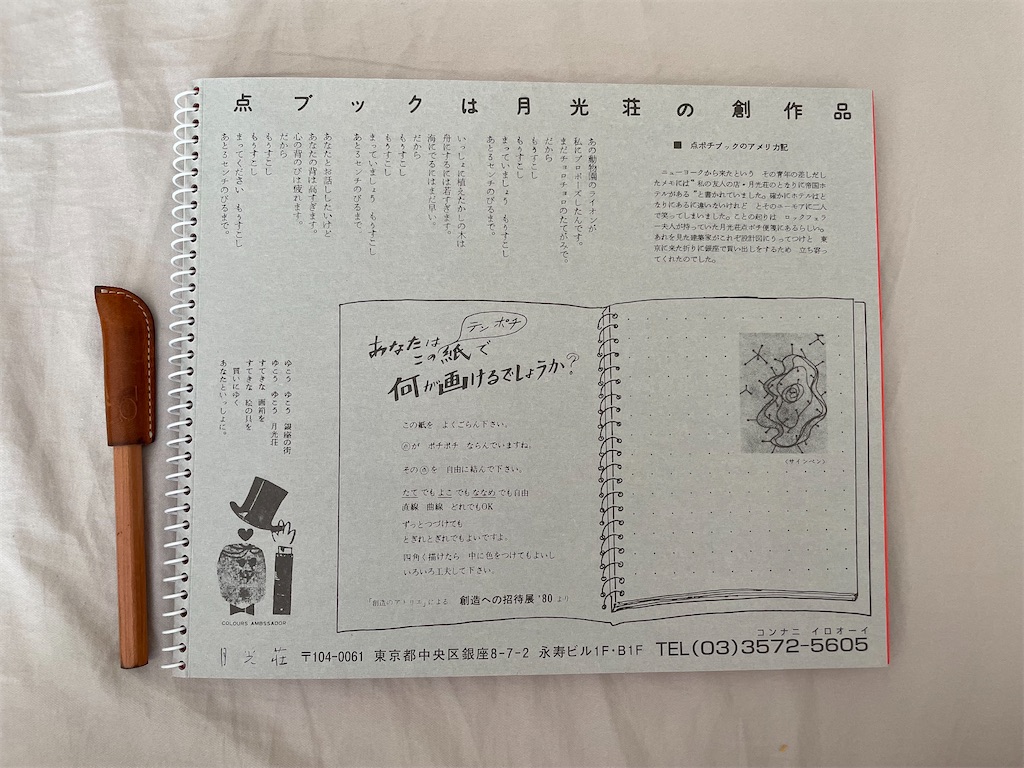 点ブックは月光荘の創作品
■ 点ポチブックのアメリカ記
ニューヨークから来たという その青年の差しだし
たメモには〝私の友人の店・月光荘のとなりに帝国ホ
テルがある〟と書かれていました。確かにホテルはと
なりにあるに違いないけれど とそのユーモアに二人
で笑ってしまいました。ことの起りは ロックフェラ
ー夫人が持っていた月光荘点ポチ便箋にあるらしい。
あれを見た建築家がこれぞ設計図にうってつけと 東
京に来た折りに銀座で買い出しをするため 立ち寄っ
てくれたのでした。
あの動物園のライオンが
私にプロポーズしたんです。
まだチョロチョロのたてがみで。
だから
もうすこし
もうすこし
まっていましょう もうすこし
あと3センチのびるまで。
いっしょに植えたかしの木は
舟にするには若すぎます。
海にでるにはまだ早い。
だから
もうすこし
もうすこし
まっていましょう もうすこし
あと3センチのびるまで。
あなたとお話ししたいけど
あなたの背は高すぎます。
心の背のびは疲れます。
だから
もうすこし
もうすこし
まってください もうすこし
あと3センチのびるまで。
ゆこう ゆこう 銀座の街
ゆこう ゆこう 月光荘
すてきな 画箱を
すてきな 絵の具を
買いにゆく
あなたといっしょに。
テンポチ
あなたは
この紙で
何が画けるでしょうか?
この紙を よくごらん下さい。
点が ポチポチ ならんでいますね。
その点を 自由に結んで下さい。
たてでもよこでもななめでも自由
直線 曲線 どれでもOK
ずっとつづけても
とぎれとぎれでもよいですよ。
四角く描けたら 中に色をつけてもよいし
いろいろ工夫して下さい。
「創造のアトリエ」による 創造への招待展 '80 より
〈サインペン〉
COLOURS AMBASSADOR
コンナニ イロオーイ
月光荘 〒104-0061 東京都中央区銀座8-7-2 永寿ビル1F・B1F TEL(03)3572-5605